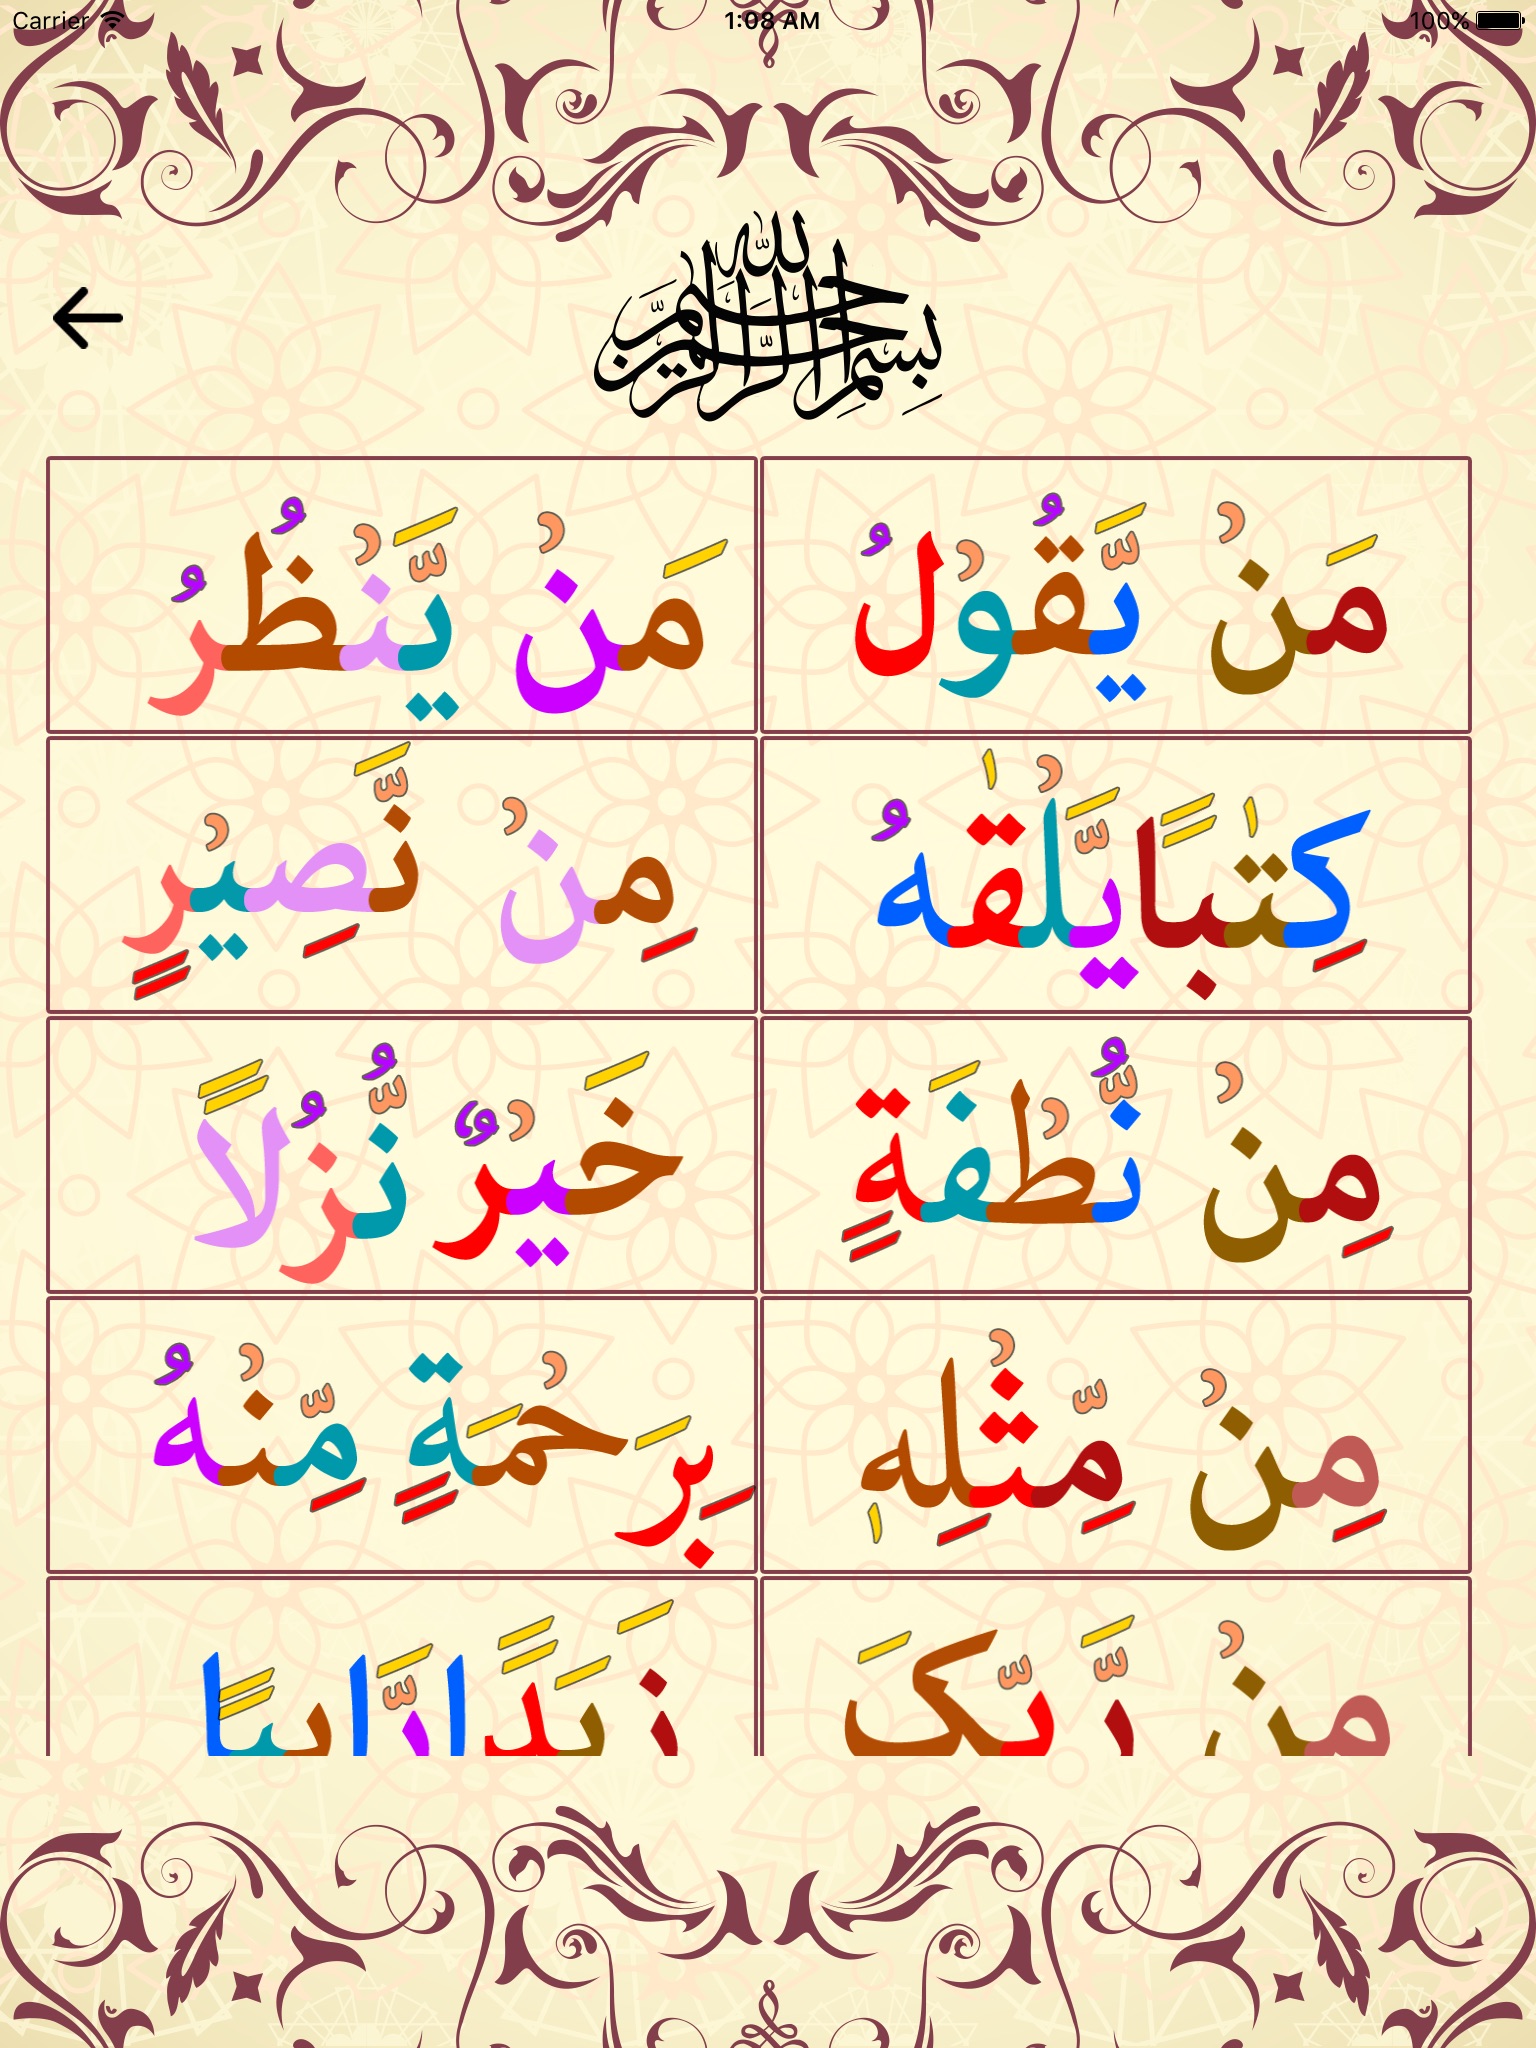 Carrier 1:08 AM 100%
بسم الله الرحمن الرحيم
مَنْ يَّقُوْلُ
مَنْ يَّنْظُرُ
كِتٰبًايَّلْقٰهُ
مِنْ نَّصِيْرٍ
مِنْ نُّطْفَةٍ
خَيْرٌ نُّزُلاً
مِنْ مِّثْلِهٖ
بِرَحْمَةٍ مِّنْهُ
مِنْ رَّبِّکَ
زَبَدًارَّابِيًا